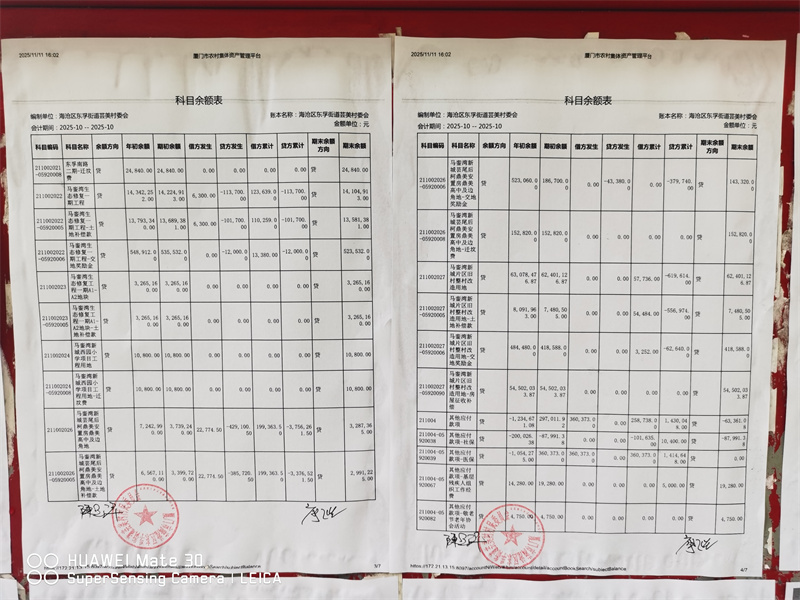 2025/11/11 16:02
厦门市农村集体资产管理平台
科目余额表
编制单位：海沧区东孚街道芸美村委会
账本名称：海沧区东孚街道芸美村委会
会计期间：2025-10 -- 2025-10
金额单位：元
科目编码 科目名称 余额方向 年初余额 期初余额 借方发生 贷方发生 借方累计 贷方累计 期末余额方向 期末余额
211002021-05920008 东孚南路二期-过坟费 贷 24,840.00 24,840.00 0.00 0.00 0.00 0.00 贷 24,840.00
211002022 马銮湾生态修复一期工程 贷 14,342,252.00 14,224,913.00 6,300.00 -113,700.00 123,639.00 -113,700.00 贷 14,104,913.00
211002022-05920005 马銮湾生态修复一期工程-土地补偿款 贷 13,793,340.00 13,689,381.00 6,300.00 -101,700.00 110,259.00 -101,700.00 贷 13,581,381.00
211002022-05920006 马銮湾生态修复一期工程-交地奖励金 贷 548,912.00 535,532.00 0.00 -12,000.00 13,380.00 -12,000.00 贷 523,532.00
211002023 马銮湾生态修复工程一期A1-A2地块 贷 3,265,160.00 3,265,160.00 0.00 0.00 0.00 0.00 贷 3,265,160.00
211002023-05920005 马銮湾生态修复工程一期A1-A2地块-土地补偿款 贷 3,265,160.00 3,265,160.00 0.00 0.00 0.00 0.00 贷 3,265,160.00
211002024 马銮湾新城西园小学项目工程用地 贷 10,800.00 10,800.00 0.00 0.00 0.00 0.00 贷 10,800.00
211002024-05920008 马銮湾新城西园小学项目工程用地-过坟费 贷 10,800.00 10,800.00 0.00 0.00 0.00 0.00 贷 10,800.00
211002026 马銮湾新城芸尾后柯鼎美安置房鼎美高中及边角地 贷 7,242,990.00 3,739,240.00 22,774.50 -429,100.50 199,363.50 -3,756,261.50 贷 3,287,365.00
211002026-05920005 马銮湾新城芸尾后柯鼎美安置房鼎美高中及边角地-土地补偿款 贷 6,567,110.00 3,399,720.00 22,774.50 -385,720.50 199,363.50 -3,376,521.50 贷 2,991,225.00
3/7
2025/11/11 16:02
厦门市农村集体资产管理平台
科目余额表
编制单位：海沧区东孚街道芸美村委会
账本名称：海沧区东孚街道芸美村委会
会计期间：2025-10 -- 2025-10
金额单位：元
科目编码 科目名称 余额方向 年初余额 期初余额 借方发生 贷方发生 借方累计 贷方累计 期末余额方向 期末余额
211002026-05920006 马銮湾新城芸尾后柯鼎美安置房鼎美高中及边角地-交地奖励金 贷 523,060.00 186,700.00 0.00 -43,380.00 0.00 -379,740.00 贷 143,320.00
211002026-05920008 马銮湾新城芸尾后柯鼎美安置房鼎美高中及边角地-过坟费 贷 152,820.00 152,820.00 0.00 0.00 0.00 0.00 贷 152,820.00
211002027 马銮湾新城片区旧村整村改造用地 贷 63,078,476.87 62,401,126.87 0.00 0.00 57,736.00 -619,614.00 贷 62,401,126.87
211002027-05920005 马銮湾新城片区旧村整村改造用地-土地补偿款 贷 8,091,963.00 7,480,505.00 0.00 0.00 54,484.00 -556,974.00 贷 7,480,505.00
211002027-05920006 马銮湾新城片区旧村整村改造用地-交地奖励金 贷 484,480.00 418,588.00 0.00 0.00 3,252.00 -62,640.00 贷 418,588.00
211002027-05920090 马銮湾新城片区旧村整村改造用地-房屋征收补偿 贷 54,502,033.87 54,502,033.87 0.00 0.00 0.00 0.00 贷 54,502,033.87
211004 其他应付款项 贷 -1,234,671.08 297,011.92 360,373.00 0.00 258,738.00 1,430,048.00 贷 -63,361.08
211004-05920038 其他应付款项-社保 贷 -200,026.38 -87,991.38 0.00 0.00 -101,635.00 10,400.00 贷 -87,991.38
211004-05920039 其他应付款项-医保 贷 -1,054,275.00 360,373.00 360,373.00 0.00 360,373.00 1,414,648.00 贷 0.00
211004-05920067 其他应付款项-基层残疾人组织工作经费 贷 14,280.00 19,280.00 0.00 0.00 0.00 5,000.00 贷 19,280.00
211004-05920082 其他应付款项-敬老节老年协会活动 贷 4,750.00 4,750.00 0.00 0.00 0.00 0.00 贷 4,750.00
4/7
HUAWEI Mate 30
SuperSensing Camera | LEICA